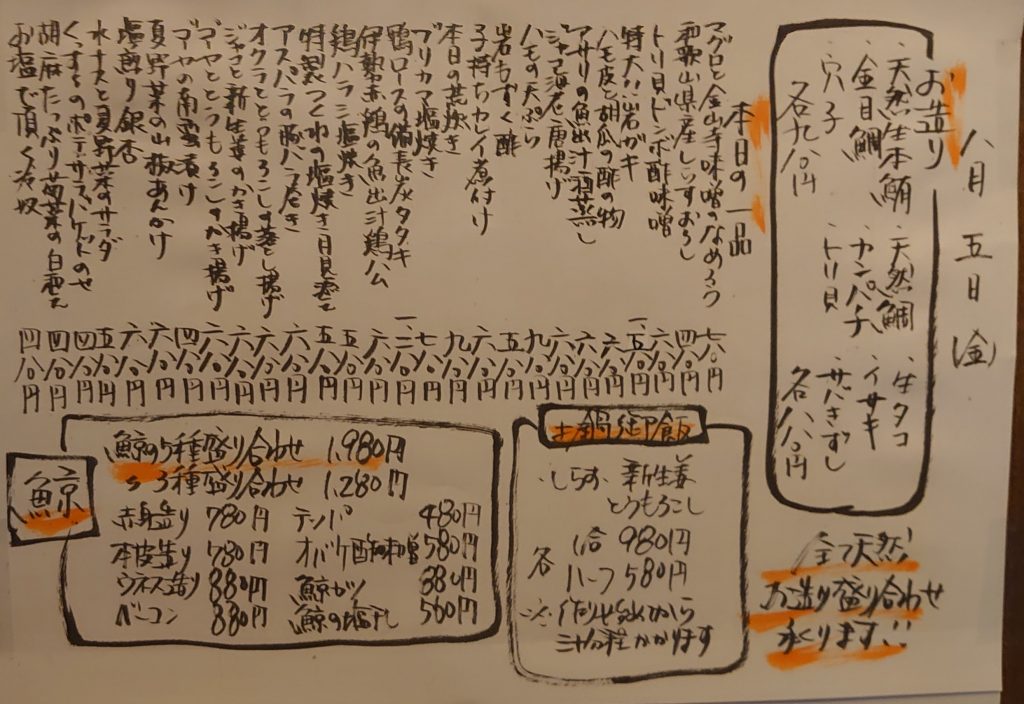 八月五日(金)
お造り
・天然生本鮪 ・天然鯛 ・生タコ
・金目鯛 ・カンパチ ・イサキ
・穴子 ・トリ貝 ・サバきずし
各九八〇円 各八八〇円
全て天然!
お造り盛り合わせ
承ります!!
本日の一品
マグロと金山寺味噌のなめろう 七八〇円
和歌山県産しらすおろし 四八〇円
トリ貝ドンポ酢味噌 六八〇円
特大!!岩ガキ 一、五八〇円
ハモ皮と胡瓜の酢の物 六八〇円
アサリの魚出汁酒蒸し 六八〇円
ジャコ海老唐揚げ 六八〇円
ハモの天ぷら 九八〇円
岩もずく酢 五八〇円
子持ちカレイ煮付け 六八〇円
本日の荒炊き 九八〇円
ブリカマ塩焼き 七八〇円
鴨ロースの備長炭タタキ 一、二八〇円
伊勢赤鶏の魚出汁鶏ハム 六八〇円
鶏ハラミ塩焼き 五八〇円
特製つくねの塩焼き月見添え 五八〇円
アスパラの豚バラ巻き 六八〇円
オクラととうもろこしの落とし揚げ 六八〇円
ジャコと新生姜のかき揚げ 六八〇円
ゴーヤととうもろこしのかき揚げ 六八〇円
ゴーヤの南蛮漬け 四八〇円
夏野菜の山椒あんかけ 六八〇円
塩煎り銀杏 六八〇円
水ナスと夏野菜のサラダ 五八〇円
ポテサラバケットのせ 四八〇円
胡麻たっぷり菊菜の白和え 四八〇円
お塩で頂く冷奴 四八〇円
土鍋御飯
・しらす 新生姜
とうもろこし
各 1合 980円
ハーフ 580円
※作りはじめから
三十分程かかります
鯨
鯨の5種盛り合わせ 1,980円
〃 3種盛り合わせ 1,280円
赤身造り 780円 テッパ 480円
本皮造り 780円 オバケ酢味噌 580円
ウネス造り 880円 鯨カツ 880円
ベーコン 880円 鯨の塩干し 560円